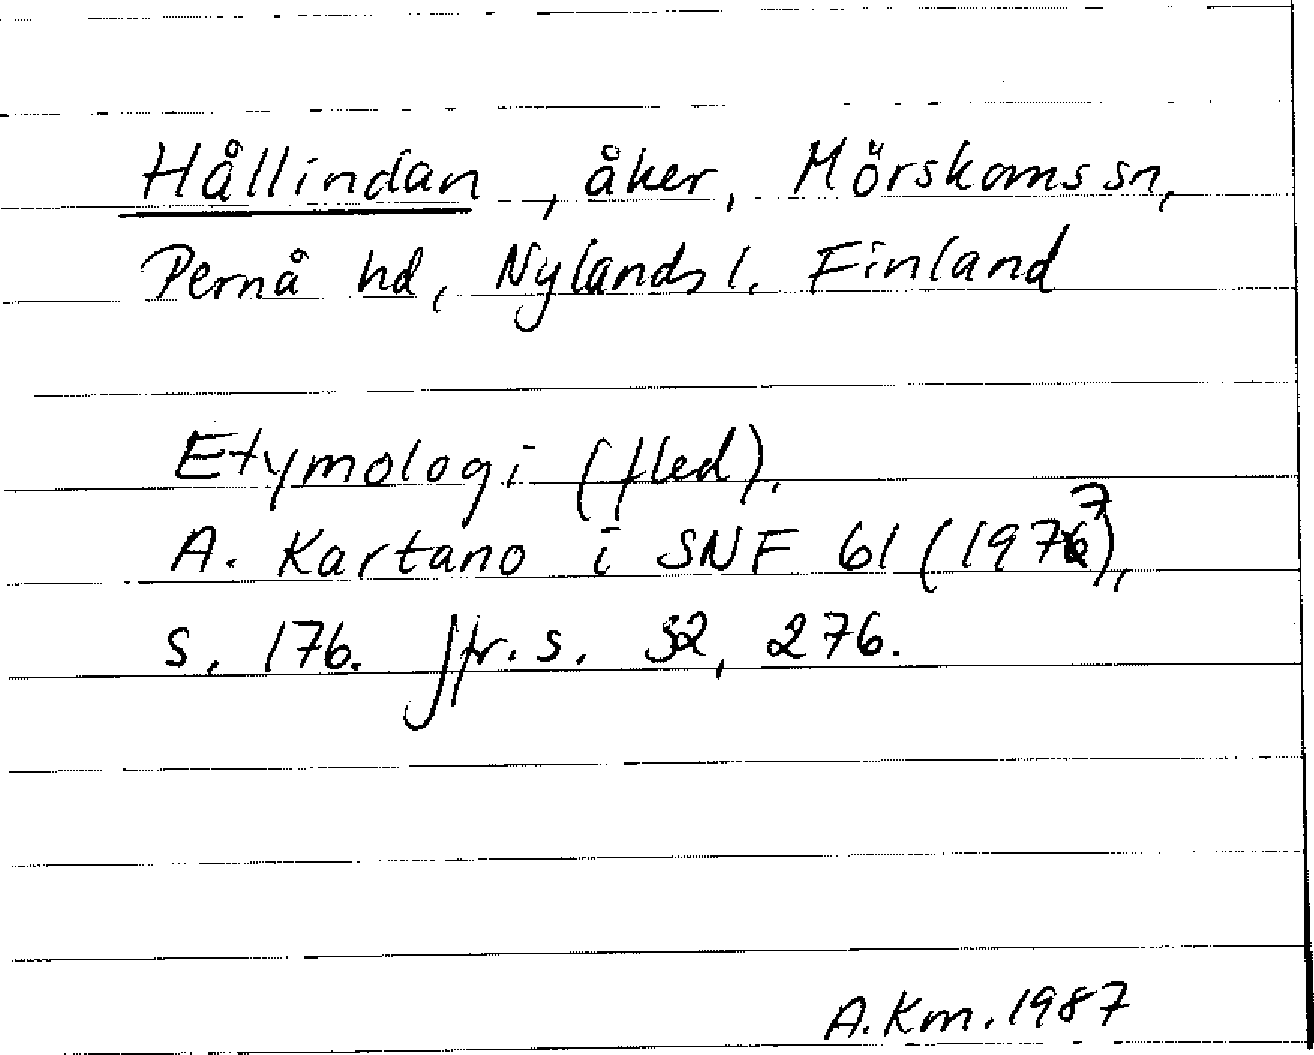 Hållindan, åker, Mörskoms sn,
Pernå hd, Nylands l. Finland
Etymologi (fled).
A. Kartano i SNF 61 (1977),
s. 176. Jfr. s. 32, 276.
A.Km. 1987